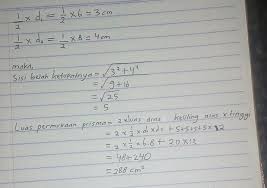 1/2 x d₁ = 1/2 x 6 = 3 cm
1/2 x d₂ = 1/2 x 8 = 4 cm
maka,
Sisi belah ketupatnya = √3² + 4²
= √9 + 16
= √25
= 5
Luas permukaan prisma = 2 x luas alas keliling alas x tinggi
= 2 x 1/2 x d₁ x d₂ + 5+5+5+5 x 12
= 2 x 1/2 x 6.8 + 20 x 12
= 48 + 240
= 288 cm²